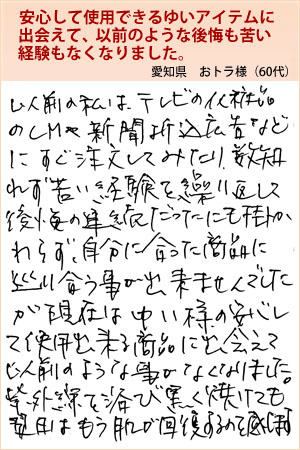 安心して使用できるゆいアイテムに
出会えて、以前のような後悔も苦い
経験もなくなりました。
愛知県　おトラ様（60代）
以前の私は、テレビの化粧品
のCMや新聞折込広告など
にすぐ注文してみたり、数知
れず苦い経験を繰り返し
後悔の連続だったにも拘か
わらず、自分に合った商品に
巡り合う事が出来ませんでした
が現在はゆい様の安心し
て使用出来る商品に出会えて
以前のような事がなくなりました。
紫外線を浴び黒く焼けても
翌日はもう肌が回復するので感謝